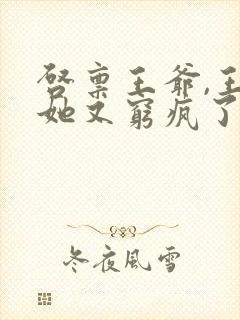 启禀王爷,王
她又窮疯了
冬夜風雪